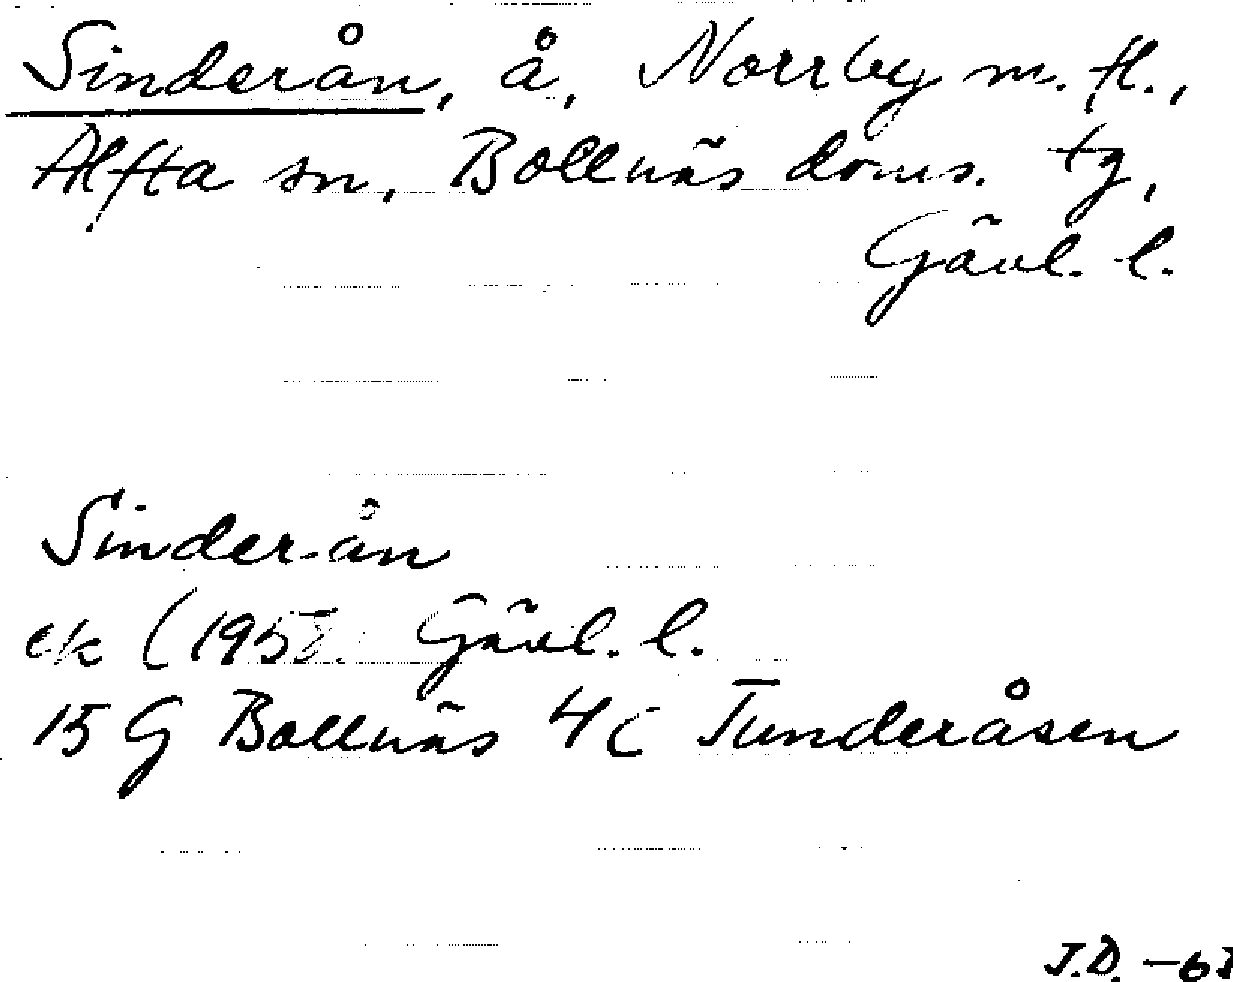 Sinderån, å, Norrby m. fl.,
Alfta sn, Bollnäs doms. tg,
Gävl. l.
Sinder-ån
ek Gävl. l.
15 G Bollnäs 4c Tunderåsen
J.D.